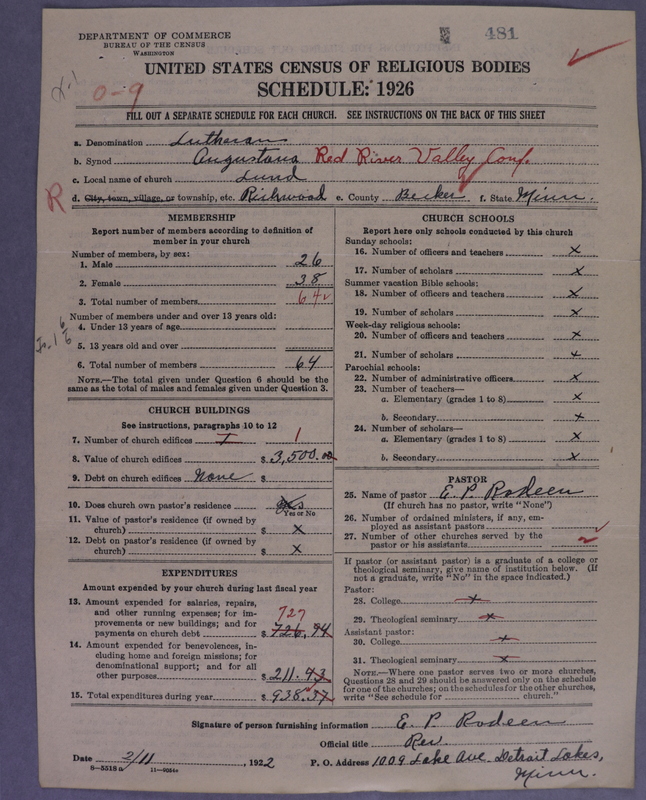 481
DEPARTMENT OF COMMERCE
BUREAU OF THE CENSUS
WASHINGTON
UNITED STATES CENSUS OF RELIGIOUS BODIES
SCHEDULE: 1926
0-9
FILL OUT A SEPARATE SCHEDULE FOR EACH CHURCH. SEE INSTRUCTIONS ON THE BACK OF THIS SHEET
a. Denomination Lutheran
b. Synod Augustana Red River Valley Conf.
c. Local name of church Lund
R
d. City, town, village, or township, etc. Richwood e. County Becker f. State Minn.
MEMBERSHIP
Report number of members according to definition of
member in your church
Number of members, by sex:
1. Male 26
2. Female 38
3. Total number of members 64
Number of members under and over 13 years old:
4. Under 13 years of age
5. 13 years old and over
6. Total number of members 64
NOTE.—The total given under Question 6 should be the
same as the total of males and females given under Question 3.
CHURCH BUILDINGS
See instructions, paragraphs 10 to 12
7. Number of church edifices 1 1
8. Value of church edifices $ 3,500.00
9. Debt on church edifices None $
10. Does church own pastor's residence
Yes or No
11. Value of pastor's residence (if owned by
church) $ X
12. Debt on pastor's residence (if owned by
church) $ X
EXPENDITURES
Amount expended by your church during last fiscal year
13. Amount expended for salaries, repairs,
and other running expenses; for im-
provements or new buildings; and for
payments on church debt $ 726.94
727
14. Amount expended for benevolences, in-
cluding home and foreign missions; for
denominational support; and for all
other purposes $ 211.43
15. Total expenditures during year $ 938.37
CHURCH SCHOOLS
Report here only schools conducted by this church
Sunday schools:
16. Number of officers and teachers X
17. Number of scholars X
Summer vacation Bible schools:
18. Number of officers and teachers X
19. Number of scholars X
Week-day religious schools:
20. Number of officers and teachers X
21. Number of scholars X
Parochial schools:
22. Number of administrative officers X
23. Number of teachers—
a. Elementary (grades 1 to 8) X
b. Secondary X
24. Number of scholars—
a. Elementary (grades 1 to 8) X
b. Secondary X
PASTOR
25. Name of pastor E. P. Rodeen
(If church has no pastor, write "None")
26. Number of ordained ministers, if any, em-
ployed as assistant pastors
27. Number of other churches served by the
pastor or his assistants
If pastor (or assistant pastor) is a graduate of a college or
theological seminary, give name of institution below. (If
not a graduate, write "No" in the space indicated.)
Pastor:
28. College X
29. Theological seminary X
Assistant pastor:
30. College X
31. Theological seminary X
NOTE.—Where one pastor serves two or more churches,
Questions 28 and 29 should be answered only on the schedule
for one of the churches; on the schedules for the other churches,
write "See schedule for church."
Signature of person furnishing information E. P. Rodeen
Official title Rev.
Date 2/11, 1922 P. O. Address 1009 Lake Ave. Detroit Lakes,
Minn.
8-5518a 11-9054